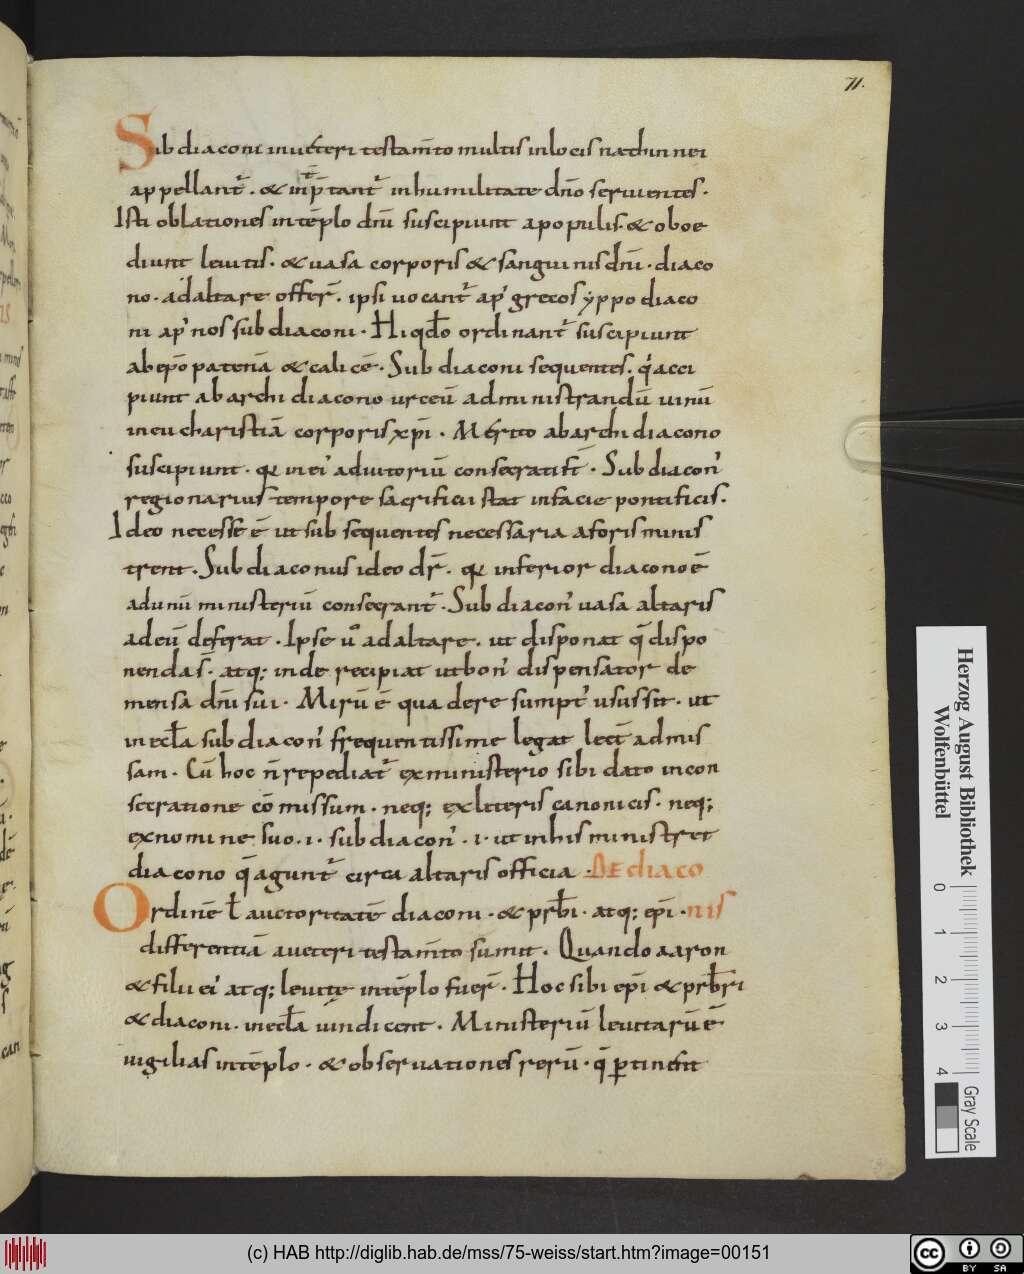 71.
Subdiaconi inueteri testam̄to multis inlocis nathinnei
appellant᷑. & int̄p̄tant᷑ inhumilitate dn̄o seruientes.
Isti oblationes intēplo dn̄i suscipiunt apopulis. & oboe
diunt leuitis. & uasa corporis & sanguinis dn̄i. diaco
no. adaltare offer̄. ipsi uocant᷑ ap' grecos yppodiaco
ni ap' nos subdiaconi. Hi qđo ordinant᷑ suscipiunt
abep̄o patenā & calicē. Subdiaconi sequentes. q'acci
piunt abarchidiacono urceū administrandū uinū
ineucharistiā corporis xp̄i. Merito abarchidiacono
suscipiunt. qr̄ inei' adiutoriū consecrati sr̄. Subdiacon'
regionarius tempore sacrificii stat infacie pontificis.
Ideo necesse ē ut subsequentes necessaria aforis minis
trent. Subdiaconus ideo dr̄. qr̄ inferior diacono ē
adunū ministeriū consecrant᷑. Subdiacon' uasa altaris
adeū deferat. Ipse u° adaltare. ut disponat q̄ dispo
nenda s̄. atq; inde recipiat utbon' dispensator de
mensa dn̄i sui. Mirū ē qua dere sumpt' usus sit. ut
inecl̄a subdiacon' frequentissime legat lect̄ admis
sam. Cū hoc n̄ repediat᷑ exministerio sibi dato incon
secratione cōmissum. neq; exlitteris canonicis. neq;
exnomine suo. i. subdiacon'. i. ut inhis ministret
diacono q̄ agunt᷑ circa altaris officia. DE diaco
Ordinē ł auctoritatē diaconi. & prb̄i. atq; ep̄i. nis
differentiā aueteri testam̄to sumit. Quando aaron
& filii ei' atq; leuite intēplo fuer̄. Hoc sibi ep̄i & prb̄ri
& diaconi. inecl̄a uindicent. Ministeriū leuitarū ē
uigilias intēplo. & obseruationes rerū. q̄ ꝑtinent
Herzog August Bibliothek
Wolfenbüttel
0 1 2 3 4
Gray Scale
(c) HAB http://diglib.hab.de/mss/75-weiss/start.htm?image=00151
cc BY SA